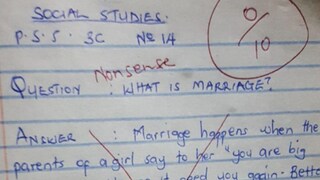 SOCIAL STUDIES.
P.S.S. 3C № 14
0/10
Nonsense
QUESTION : WHAT IS MARRIAGE?
ANSWER : Marriage happens when the
parents of a girl say to her "you are big
need you again. Bette